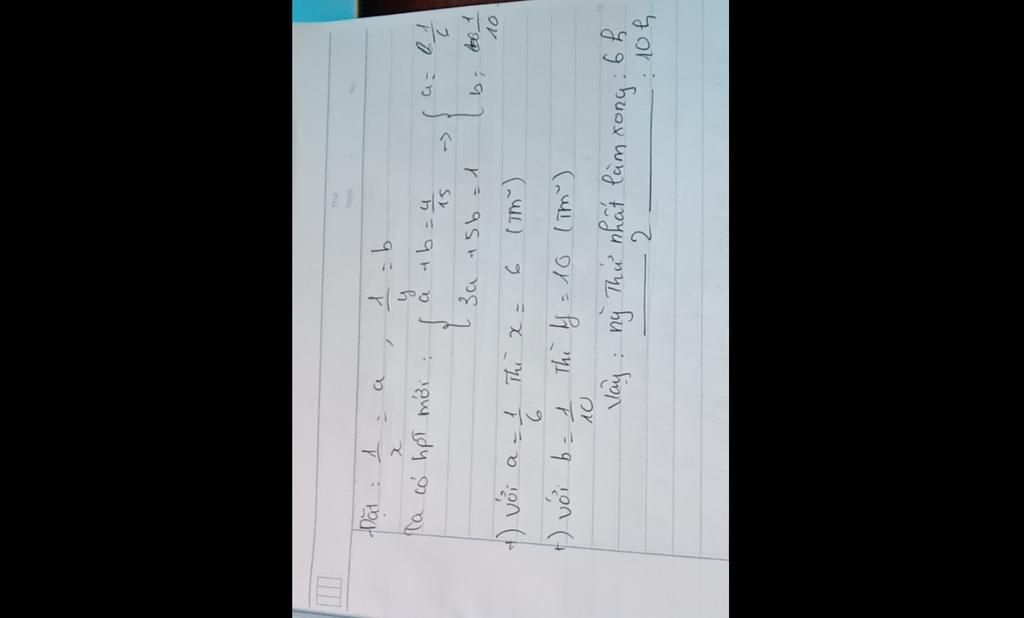 Thứ
Ngày
No.
Đặt : 1/x = a , 1/y = b
Ta có hpt mới : { a + b = 4/15 → { a = 1/6
{ 3a + 5b = 1 { b = 1/10
+) Với a = 1/6 Thì x = 6 (TM)
+) Với b = 1/10 Thì y = 10 (TM)
Vậy : ng Thứ nhất làm xong : 6 h
___ 2 ___ : 10 h